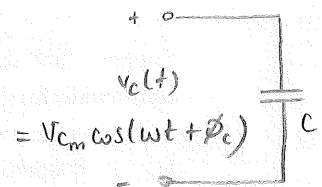 +
v_c(t)
= V_{Cm} cos(ωt + ø_c)
C
-